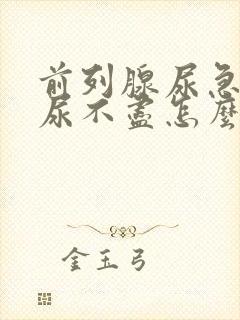 前列腺尿急
尿不盡怎麼
金玉弓